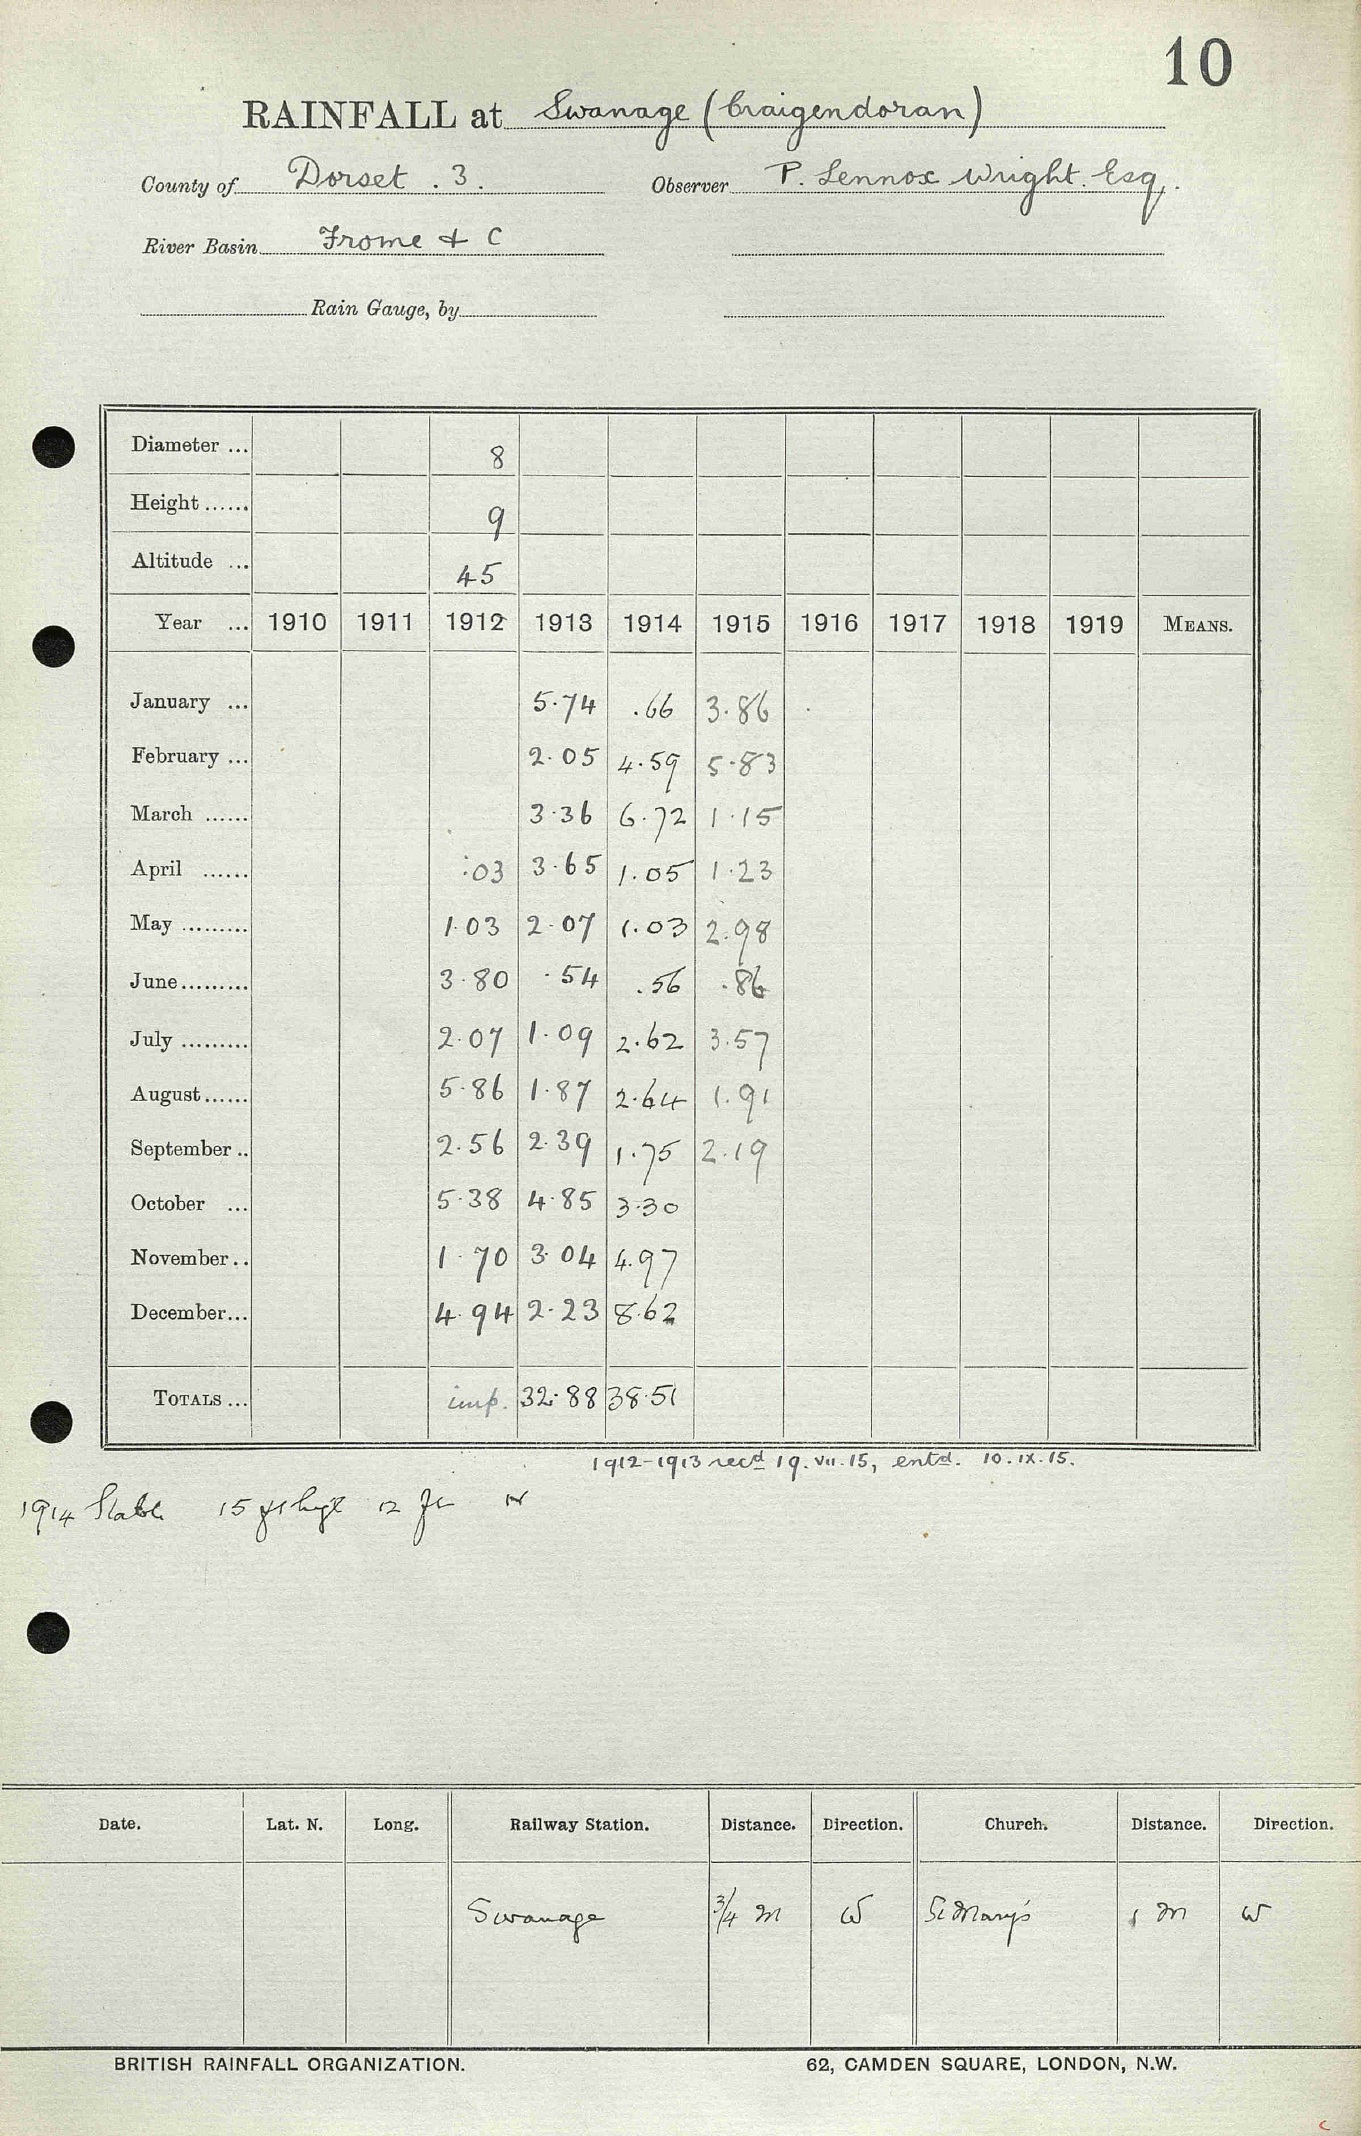 10
RAINFALL at Swanage (Craigendoran)
County of Dorset . 3. Observer P. Lennox Wright. Esq.
River Basin Frome & C
Rain Gauge, by
Diameter ... 8
Height ...... 9
Altitude ... 45
Year ... 1910 1911 1912 1913 1914 1915 1916 1917 1918 1919 MEANS.
January ... 5.74 .66 3.86
February ... 2.05 4.59 5.83
March ...... 3.36 6.72 1.15
April ...... .03 3.65 1.05 1.23
May ......... 1.03 2.07 1.03 2.98
June ......... 3.80 .54 .56 .86
July ......... 2.07 1.09 2.62 3.57
August ...... 5.86 1.87 2.64 1.91
September .. 2.56 2.39 1.75 2.19
October ... 5.38 4.85 3.30
November .. 1.70 3.04 4.97
December ... 4.94 2.23 8.62
TOTALS ... imp. 32.88 38.51
1912-1913 recd 19.VII.15, entd. 10.IX.15.
1914 15 12 ft
Date. Lat. N. Long. Railway Station. Distance. Direction. Church. Distance. Direction.
Swanage 3/4 M W St Mary's 1 M W
BRITISH RAINFALL ORGANIZATION. 62, CAMDEN SQUARE, LONDON, N.W.
c